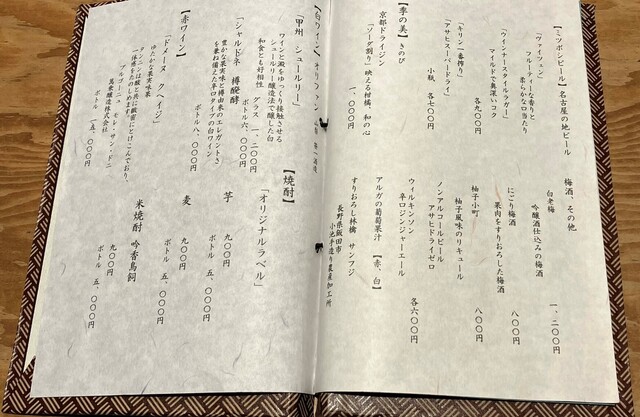 【ミツボシビール】名古屋の地ビール
「ヴァイツェン」
フルーティーな香りと
柔らかな口当たり
「ウィンナースタイルラガー」
マイルドで奥深いコク
各九〇〇円
「キリン一番搾り」
「アサヒスーパードライ」
小瓶 各七〇〇円
【季の美】きのび
京都ドライジン
「ソーダ割り」映える柑橘、和の心
一、〇〇〇円
梅酒、その他
白老梅
吟醸酒仕込みの梅酒
一、二〇〇円
にごり梅酒
果肉をすりおろした梅酒
八〇〇円
柚子小町
柚子風味のリキュール
八〇〇円
ノンアルコールビール
アサヒドライゼロ
ウィルキンソン
辛口ジンジャーエール
各六〇〇円
アルガの葡萄果汁 【赤、白】
すりおろし林檎 サンフジ
長野県飯田市
小池手造り農産加工所
【白ワイン】
【甲州 シュールリー】
ワインと澱をゆっくり接触させる
シュールリー醸造法で醸した白
和食とも好相性
グラス 一、二〇〇円
ボトル 六、〇〇〇円
「シャルドネ 樽醗酵」
豊かな果実味と樽由来のエレガントさ
を兼ね備えた辛口タイプの白ワイン
ボトル 八、〇〇〇円
【赤ワイン】
「ドメーヌ クヘイジ」
ゆたかな果実味
タンニンは酸と共に緻密にとけこんでおり、
ブルゴーニュ モレ・サン・ドニ
萬乗醸造株式会社
ボトル 一五、〇〇〇円
【焼酎】
「オリジナルラベル」
芋 九〇〇円
ボトル 五、〇〇〇円
麦 九〇〇円
ボトル 五、〇〇〇円
米焼酎 吟香鳥飼
九〇〇円
ボトル 五、〇〇〇円